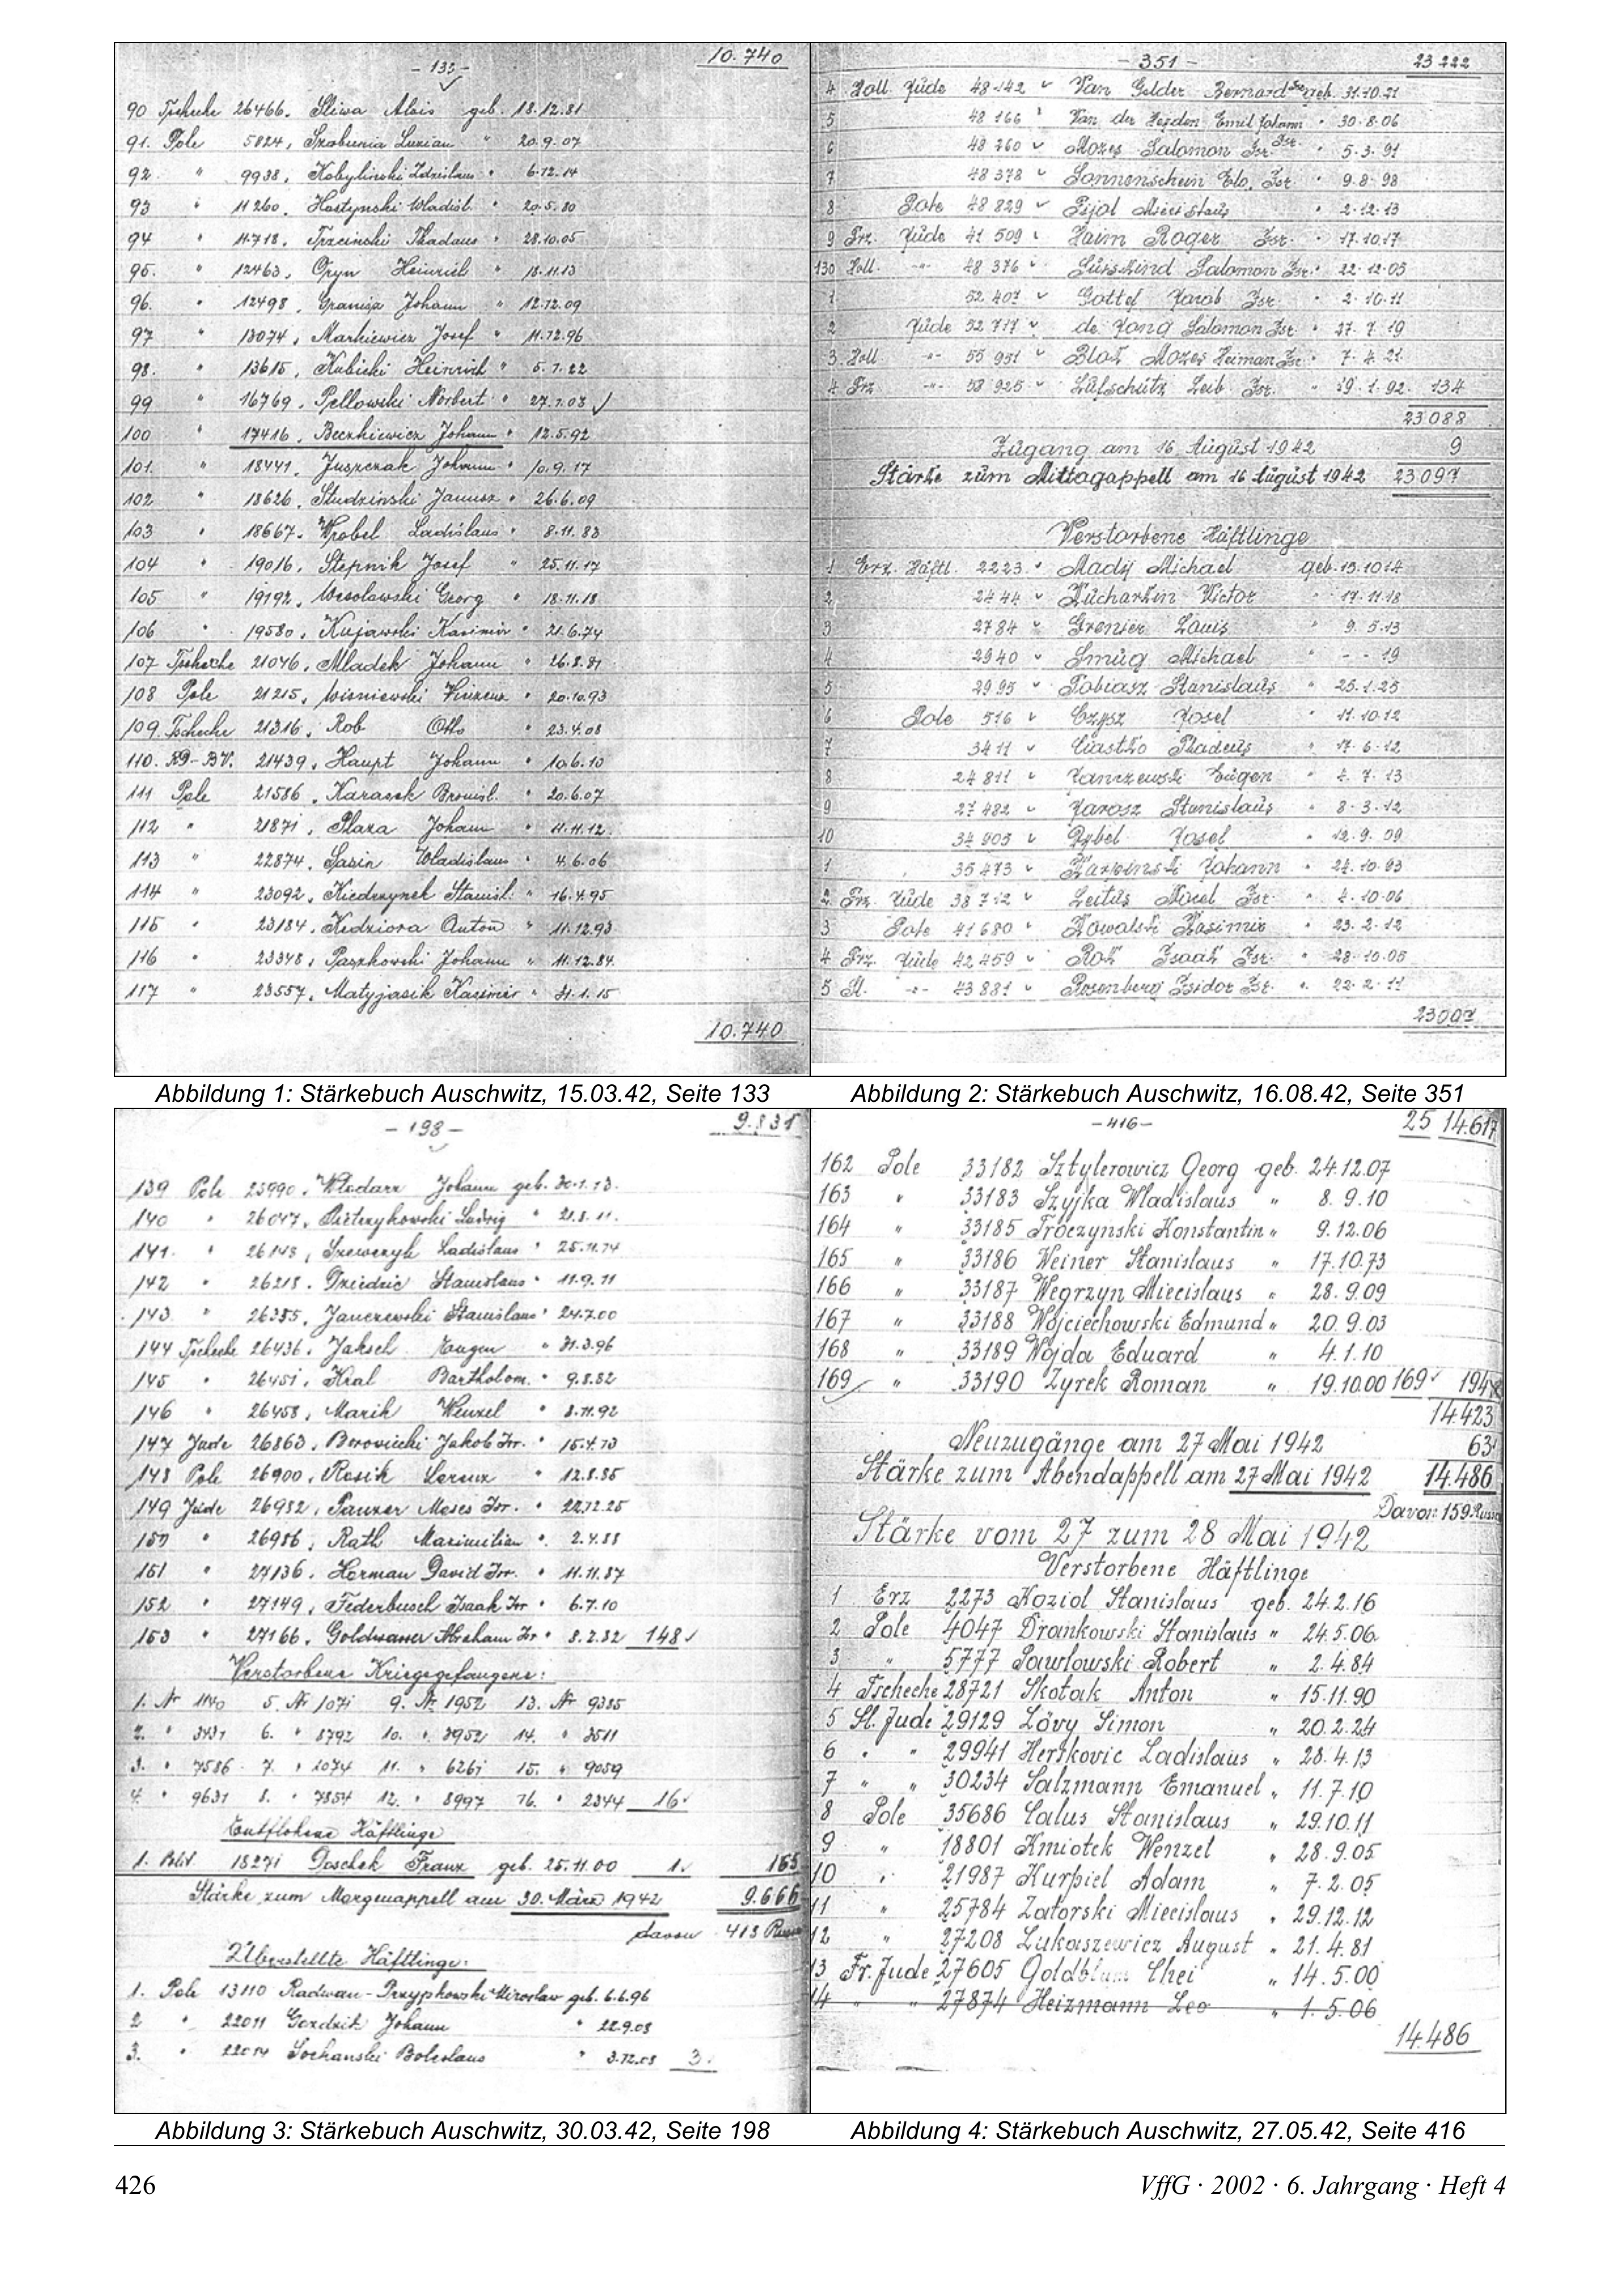 - 133 -
10.740
90 Tscheche 26466, Sliwa Alois geb. 18.12.81
91. Pole 5824, Lucian " 20.9.07
92. " 9938, Kobylinski Zdzislaus " 6.12.14
93 " 11260, Hostynski Wladisl. " 20.5.80
94 " 11718, Trzcinski Thadäus " 28.10.05
95. " 12463, Gryn Heinrich " 18.11.13
96. " 12498, Johann " 12.12.09
97 " 13074, Markiewicz Josef " 11.12.96
98. " 13615, Kubicki Heinrich " 5.7.22
99 " 16769, Pellowski Norbert " 27.7.08
100 " 17416, Beczkiewicz Johann " 12.5.92
101. " 18441, Juszczak Johann " 10.9.17
102 " 18626, Studzinski Janusz " 26.6.09
103 " 18667, Wrobel Ladislaus " 8.11.83
104 " 19016, Stepnik Josef " 25.11.17
105 " 19192, Wesolowski Georg " 18.11.18
106 " 19580, Kujawski Kasimir " 21.6.74
107 Tscheche 21046, Mladek Johann " 26.8.81
108 Pole 21215, Wisniewski Vinzenz " 20.10.93
109. Tscheche 21316, Rob Otto " 23.4.08
110. RD-BV. 21439, Haupt Johann " 10.6.10
111 Pole 21586, Karasek Bronisl. " 20.6.07
112 " 21871, Plaza Johann " 11.11.12.
113 " 22874, Sasin Wladislaus " 4.6.06
114 " 23092, Stanisl. " 16.4.95
115 " 23184, Kedziora Anton " 11.12.93
116 " 23348, Paszkowski Johann " 11.12.84.
117 " 23557, Matyjasik Kasimir " 31.1.15
10.740
Abbildung 1: Stärkebuch Auschwitz, 15.03.42, Seite 133
- 351 -
23 222
4 Holl. Jude 48 142 Van Gelder Bernard Isr. geb. 31.10.21
5 48 166 Van der Heyden Emil Johann " 30.8.06
6 48 260 Mozes Salomon Isr. " 5.3.91
7 48 378 Sonnenschein Elo. Isr. " 9.8.98
8 Pole 48 829 Pijol " 2.12.13
9 Frz. Jude 41 509 Haim Roger Isr. " 17.10.17
130 Holl. -"- 48 376 Süsskind Salomon Isr. " 22.12.05
1 52 407 Gottef Jacob Isr. " 2.10.11
2 Jude 52 717 de Jong Salomon Isr. " 27.7.19
3 Holl. -"- 55 951 Blok Mozes Heiman Isr. " 7.4.21
4 Frz. -"- 58 925 Lufschütz Leib Isr. " 19.1.92 134
23 088
Zugang am 16 August 1942 9
Stärke zum Mittagappell am 16 August 1942 23 097
Verstorbene Häftlinge
1 Erz. Häftl. 2223 Mady Michael geb. 13.10.14
2 2444 Kucharkin Victor " 17.11.18
3 2784 Grenier Louis " 9.5.13
4 2940 Smug Michael " - - 19
5 2995 Tobiasz Stanislaus " 25.1.25
6 Pole 516 Czysz Josef " 11.10.12
7 3411 Ciastko Thadeus " 17.6.12
8 24 811 Janczewski Eugen " 4.7.13
9 27 482 Jarosz Stanislaus " 8.3.12
10 34 903 Rybel Josef " 12.9.09
1 35 473 Karpinski Johann " 24.10.03
2 Frz. Jude 38 712 Leitus Isr. " 4.10.06
3 Pole 41 680 Kowalski Kasimir " 23.2.12
4 Frz. Jude 42 459 Rok Isaak Isr. " 28.10.05
5 Sl. -"- 43 881 Rosenberg Isidor Isr. " 22.2.11
23 097
Abbildung 2: Stärkebuch Auschwitz, 16.08.42, Seite 351
- 198 -
9.831
139 Pole 25990, Wlodarz Johann geb. 30.1.13.
140 " 26047, Pietrzykowski Ludwig " 21.8.11.
141. " 26143, Szewczyk Ladislaus " 25.11.74
142 " 26218, Dziedzic Stanislaus " 11.9.11
143 " 26385, Janczewski Stanislaus " 24.7.00
144 Tscheche 26436, Jaksch Eugen " 31.3.96
145 " 26451, Kral Bartholom. " 9.8.82
146 " 26458, Marik Wenzel " 8.11.92
147 Jude 26863, Borowiecki Jakob Isr. " 15.4.73
148 Pole 26900, Rosik Lorenz " 12.8.85
149 Jude 26982, Panzer Moses Isr. " 22.12.25
150 " 26986, Rath Maximilian " 2.4.88
151 " 27136, Herman David Isr. " 11.11.87
152 " 27149, Federbusch Isaak Isr " 6.7.10
153 " 27166, Goldwasser Abraham Isr " 8.2.82 148
Verstorbene Kriegsgefangene:
1. Nr 1140 5. Nr 1071 9. Nr 1952 13. Nr 9385
2. " 3431 6. " 8792 10. " 3952 14. " 3511
3. " 7586 7. " 1074 11. " 6261 15. " 9059
4. " 9631 8. " 7854 12. " 8997 16. " 2344 16
Entflohene Häftlinge
1. 18271 Doschek Franz geb. 25.11.00 1. 165
Stärke zum Morgenappell am 30. März 1942 9.666
davon 413 Russen
Überstellte Häftlinge:
1. Pole 13110 Radwan-Przypkowski Miroslaw geb. 6.6.96
2 " 22011 Gozdzik Johann " 22.9.08
3. " 22014 Sochanski Boleslaus " 3.12.08 3.
Abbildung 3: Stärkebuch Auschwitz, 30.03.42, Seite 198
- 416 -
25 14.617
162 Pole 33182 Sztylerowicz Georg geb. 24.12.07
163 " 33183 Szyjka Wladislaus " 8.9.10
164 " 33185 Troczynski Konstantin " 9.12.06
165 " 33186 Weiner Stanislaus " 17.10.73
166 " 33187 Wegrzyn Miecislaus " 28.9.09
167 " 33188 Wojciechowski Edmund " 20.9.03
168 " 33189 Wojda Eduard " 4.1.10
169 " 33190 Zyrek Roman " 19.10.00 169 194
14.423
Neuzugänge am 27 Mai 1942 63
Stärke zum Abendappell am 27 Mai 1942 14.486
Davon 159 Russen
Stärke vom 27 zum 28 Mai 1942
Verstorbene Häftlinge
1 Erz 2273 Koziol Stanislaus geb. 24.2.16
2 Pole 4047 Drankowski Stanislaus " 24.5.06
3 " 5777 Pawlowski Robert " 2.4.84
4 Tscheche 28721 Skotak Anton " 15.11.90
5 Sl. Jude 29129 Lövy Simon " 20.2.24
6 " " 29941 Herskovic Ladislaus " 28.4.13
7 " " 30234 Salzmann Emanuel " 11.7.10
8 Pole 35686 Calus Stanislaus " 29.10.11
9 " 18801 Kmiotek Wenzel " 28.9.05
10 " 21987 Kurpiel Adam " 7.2.05
11 " 25784 Zatorski Miecislaus " 29.12.12
12 " 27208 Lukaszewicz August " 21.4.81
13 Fr. Jude 27605 Goldblum Chei " 14.5.00
14 " " 27874 Heizmann Leo " 1.5.06
14.486
Abbildung 4: Stärkebuch Auschwitz, 27.05.42, Seite 416
426
VffG · 2002 · 6. Jahrgang · Heft 4